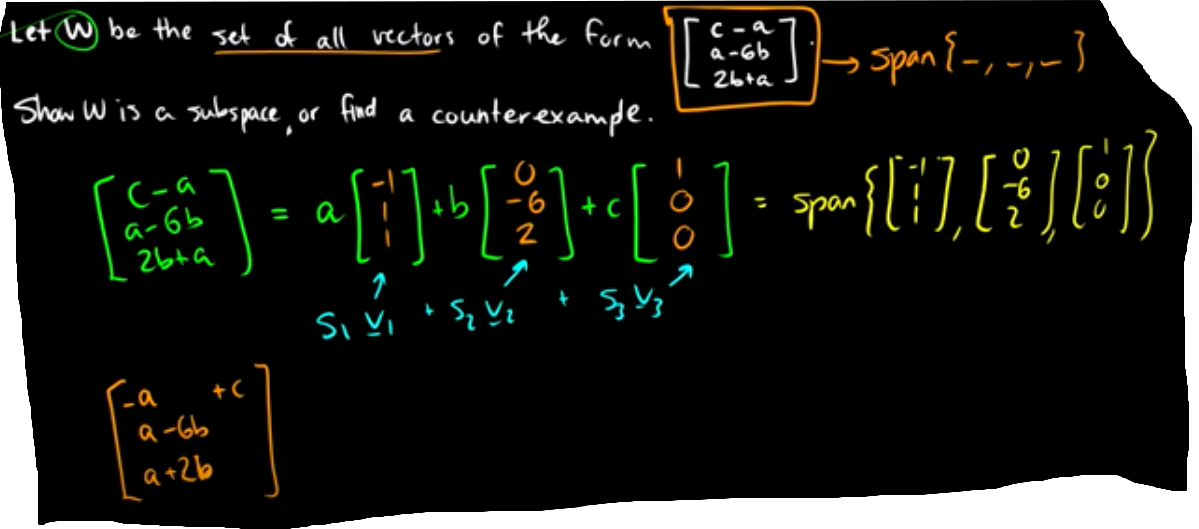 Let W be the set of all vectors of the form [c - a; a - 6b; 2b + a]. → span{ _, _, _ }
Show W is a subspace, or find a counterexample.
[c - a; a - 6b; 2b + a] = a[-1; 1; 1] + b[0; -6; 2] + c[1; 0; 0] = span{[-1; 1; 1], [0; -6; 2], [1; 0; 0]}
S₁ v₁ + S₂ v₂ + S₃ v₃
[-a + c; a - 6b; a + 2b]